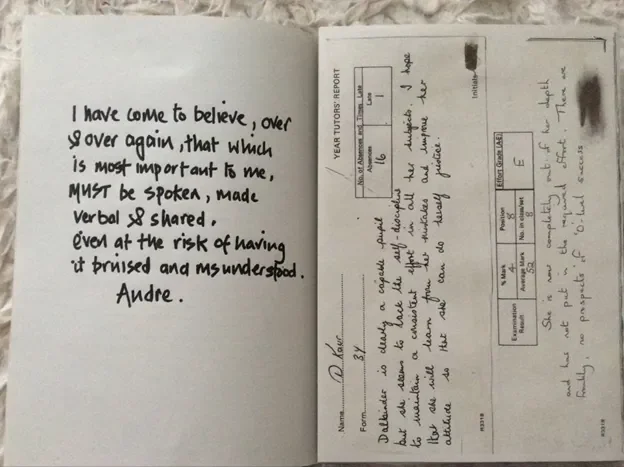 I have come to believe, over
& over again, that which
is most important to me,
MUST be spoken, made
verbal & shared,
even at the risk of having
it bruised and msunderstood.
Andre.
YEAR TUTORS' REPORT
Name D Kaur
Form 3Y
No. of Absences and Times Late
Absences Late
16 1
Dalbinder is clearly a capable pupil
but she seems to lack the self-discipline
to maintain a consistent effort in all her subjects. I hope
that she will learn from her mistakes and improve her
attitude so that she can do herself justice.
Initials
RS318
Examination Result
% Mark Position Effort Grade (A-E)
4 8 E
Average Mark No. in class/set
52 8
She is now completely out of her depth
and has not put in the required effort. There are
frankly, no prospects of 'O' level success
RS318